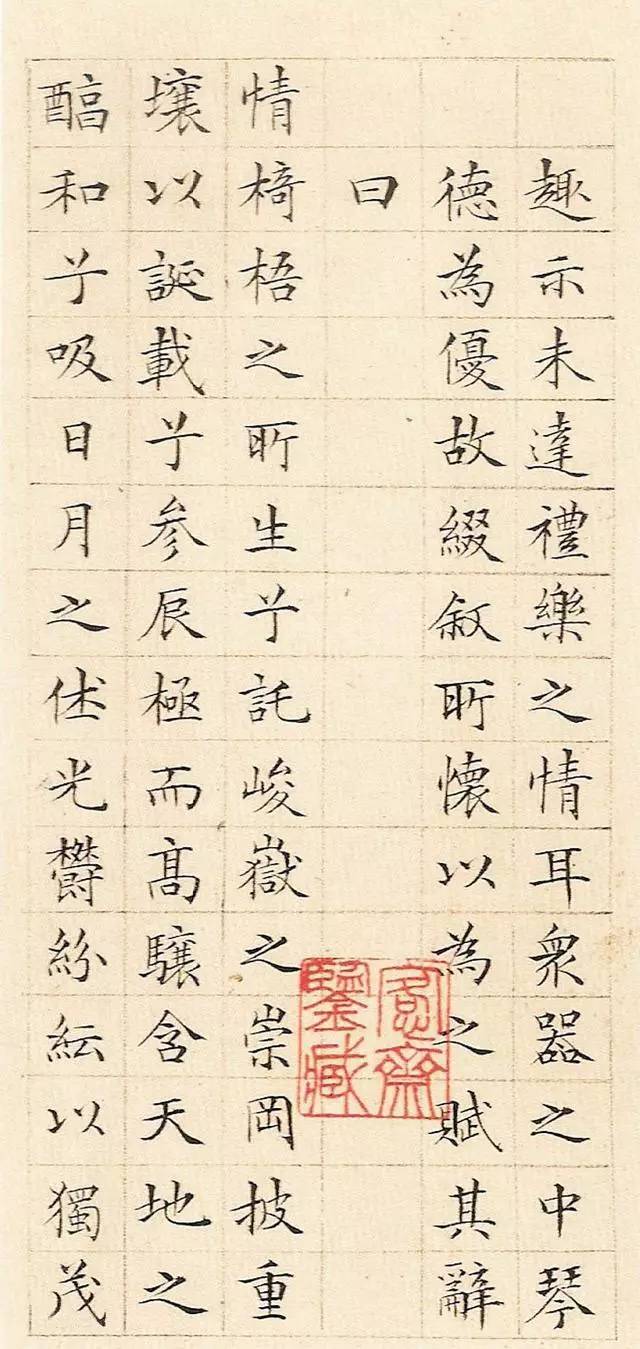 趣示未達禮樂之情耳衆器之中琴
德為優故綴敘所懷以為之賦其辭
曰
情椅梧之所生兮託峻嶽之崇岡披重
壤以誕載兮参辰極而髙驤含天地之
醕和兮吸日月之休光鬱紛紜以獨茂
愙齋鑒藏